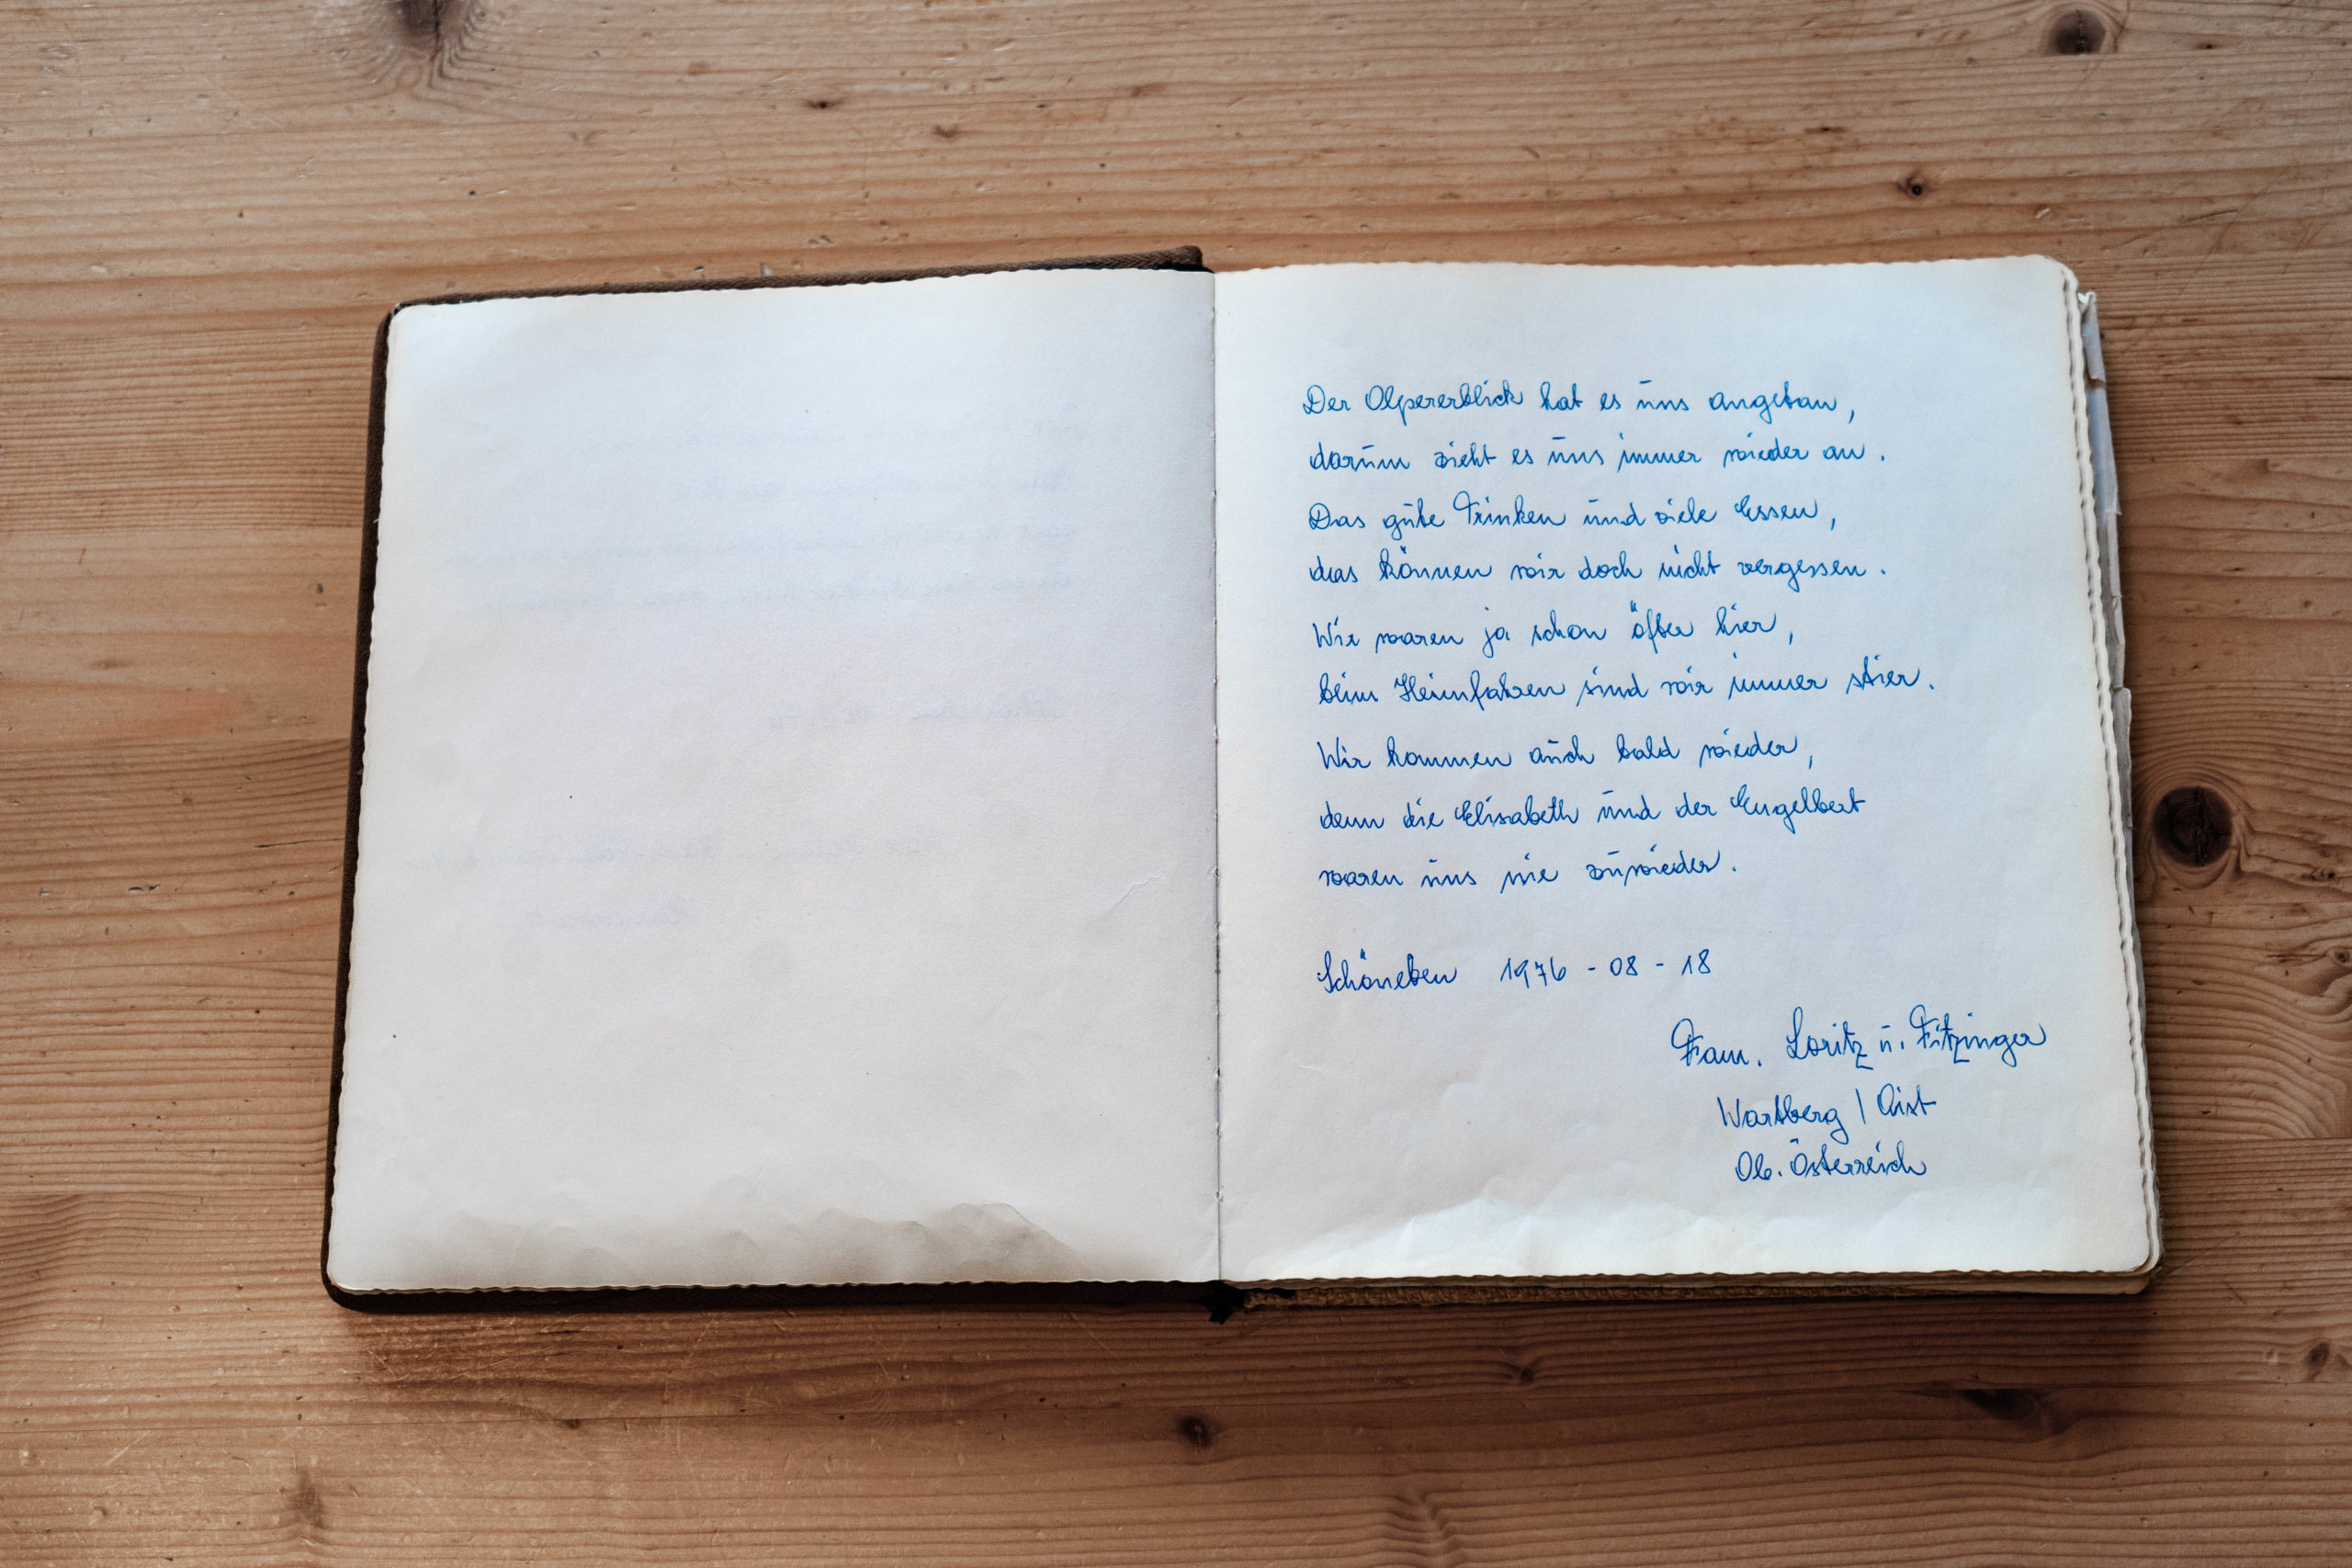 Der Olpererblick hat es uns angetan,
darum zieht es uns immer wieder an.
Das gute Trinken und viele Essen,
das können wir doch nicht vergessen.
Wir waren ja schon öfter hier,
beim Heimfahren sind wir immer stier.
Wir kommen auch bald wieder,
denn die Elisabeth und der Engelbert
waren uns nie zuwieder.
Schöneben 1976-08-18
Fam. Loritz u. Fitzinger
Wartberg / Aist
Ob. Österreich